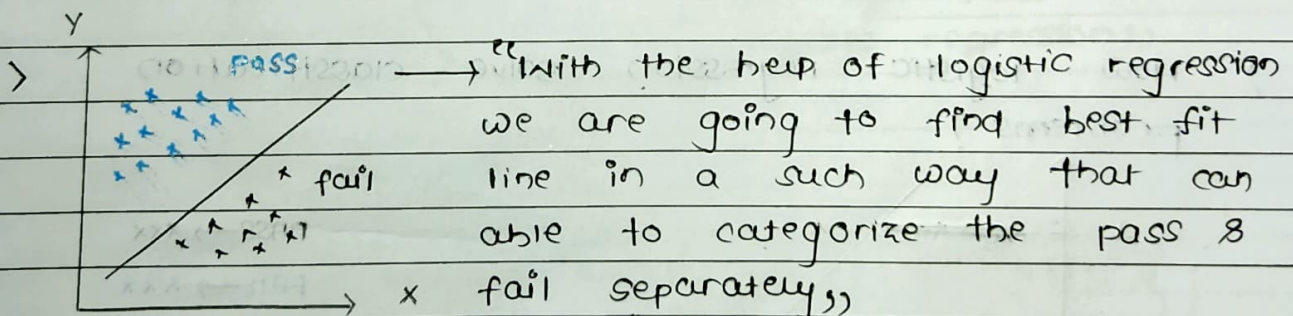 Y
> pass → "With the help of logistic regression
we are going to find best fit
fail line in a such way that can
able to categorize the pass &
x fail separately"